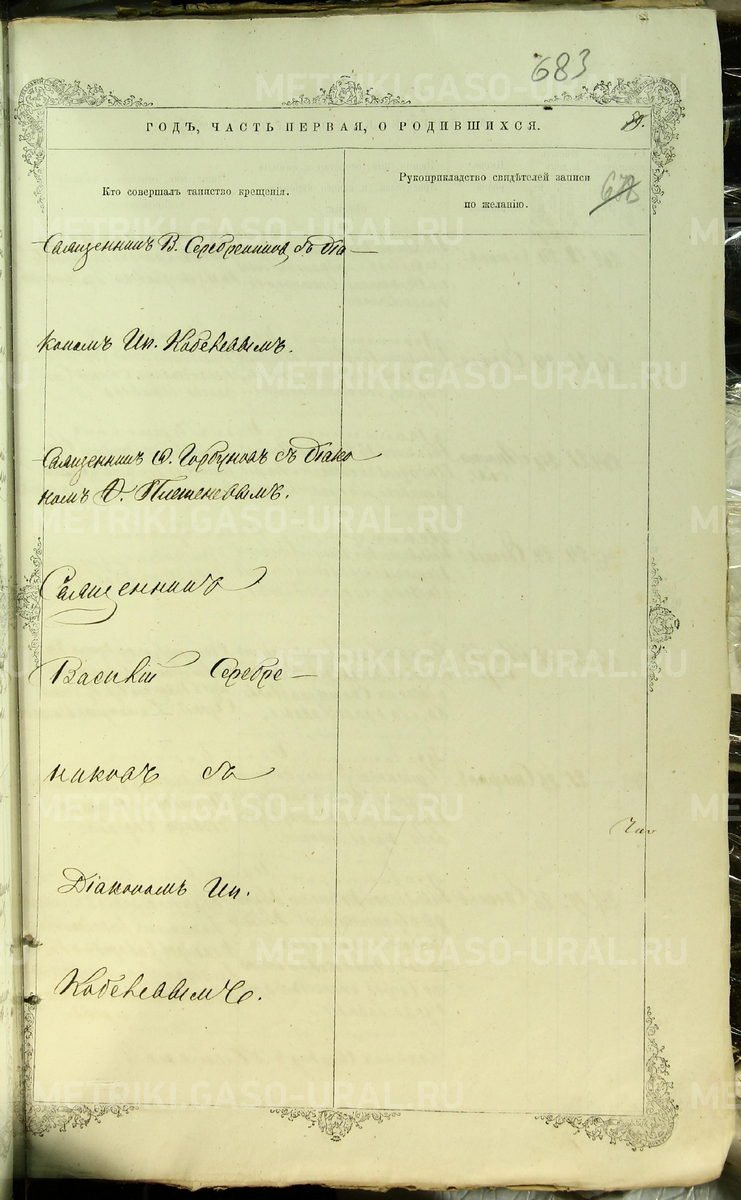 683
ГОДЪ, ЧАСТЬ ПЕРВАЯ, О РОДИВШИХСЯ.
Кто совершалъ таинство крещенія.
Рукоприкладство свидѣтелей записи
по желанію.
678
Священникъ В. Серебренниковъ съ діа—
кономъ Ип. Кобелевымъ.
Священникъ Ѳ. Горбуновъ съ діако
номъ Ѳ. Плетеневымъ.
Священникъ
Василій Серебре—
никовъ съ
Діакономъ Ип.
Кобелевымъ.
METRIKI.GASO-URAL.RU